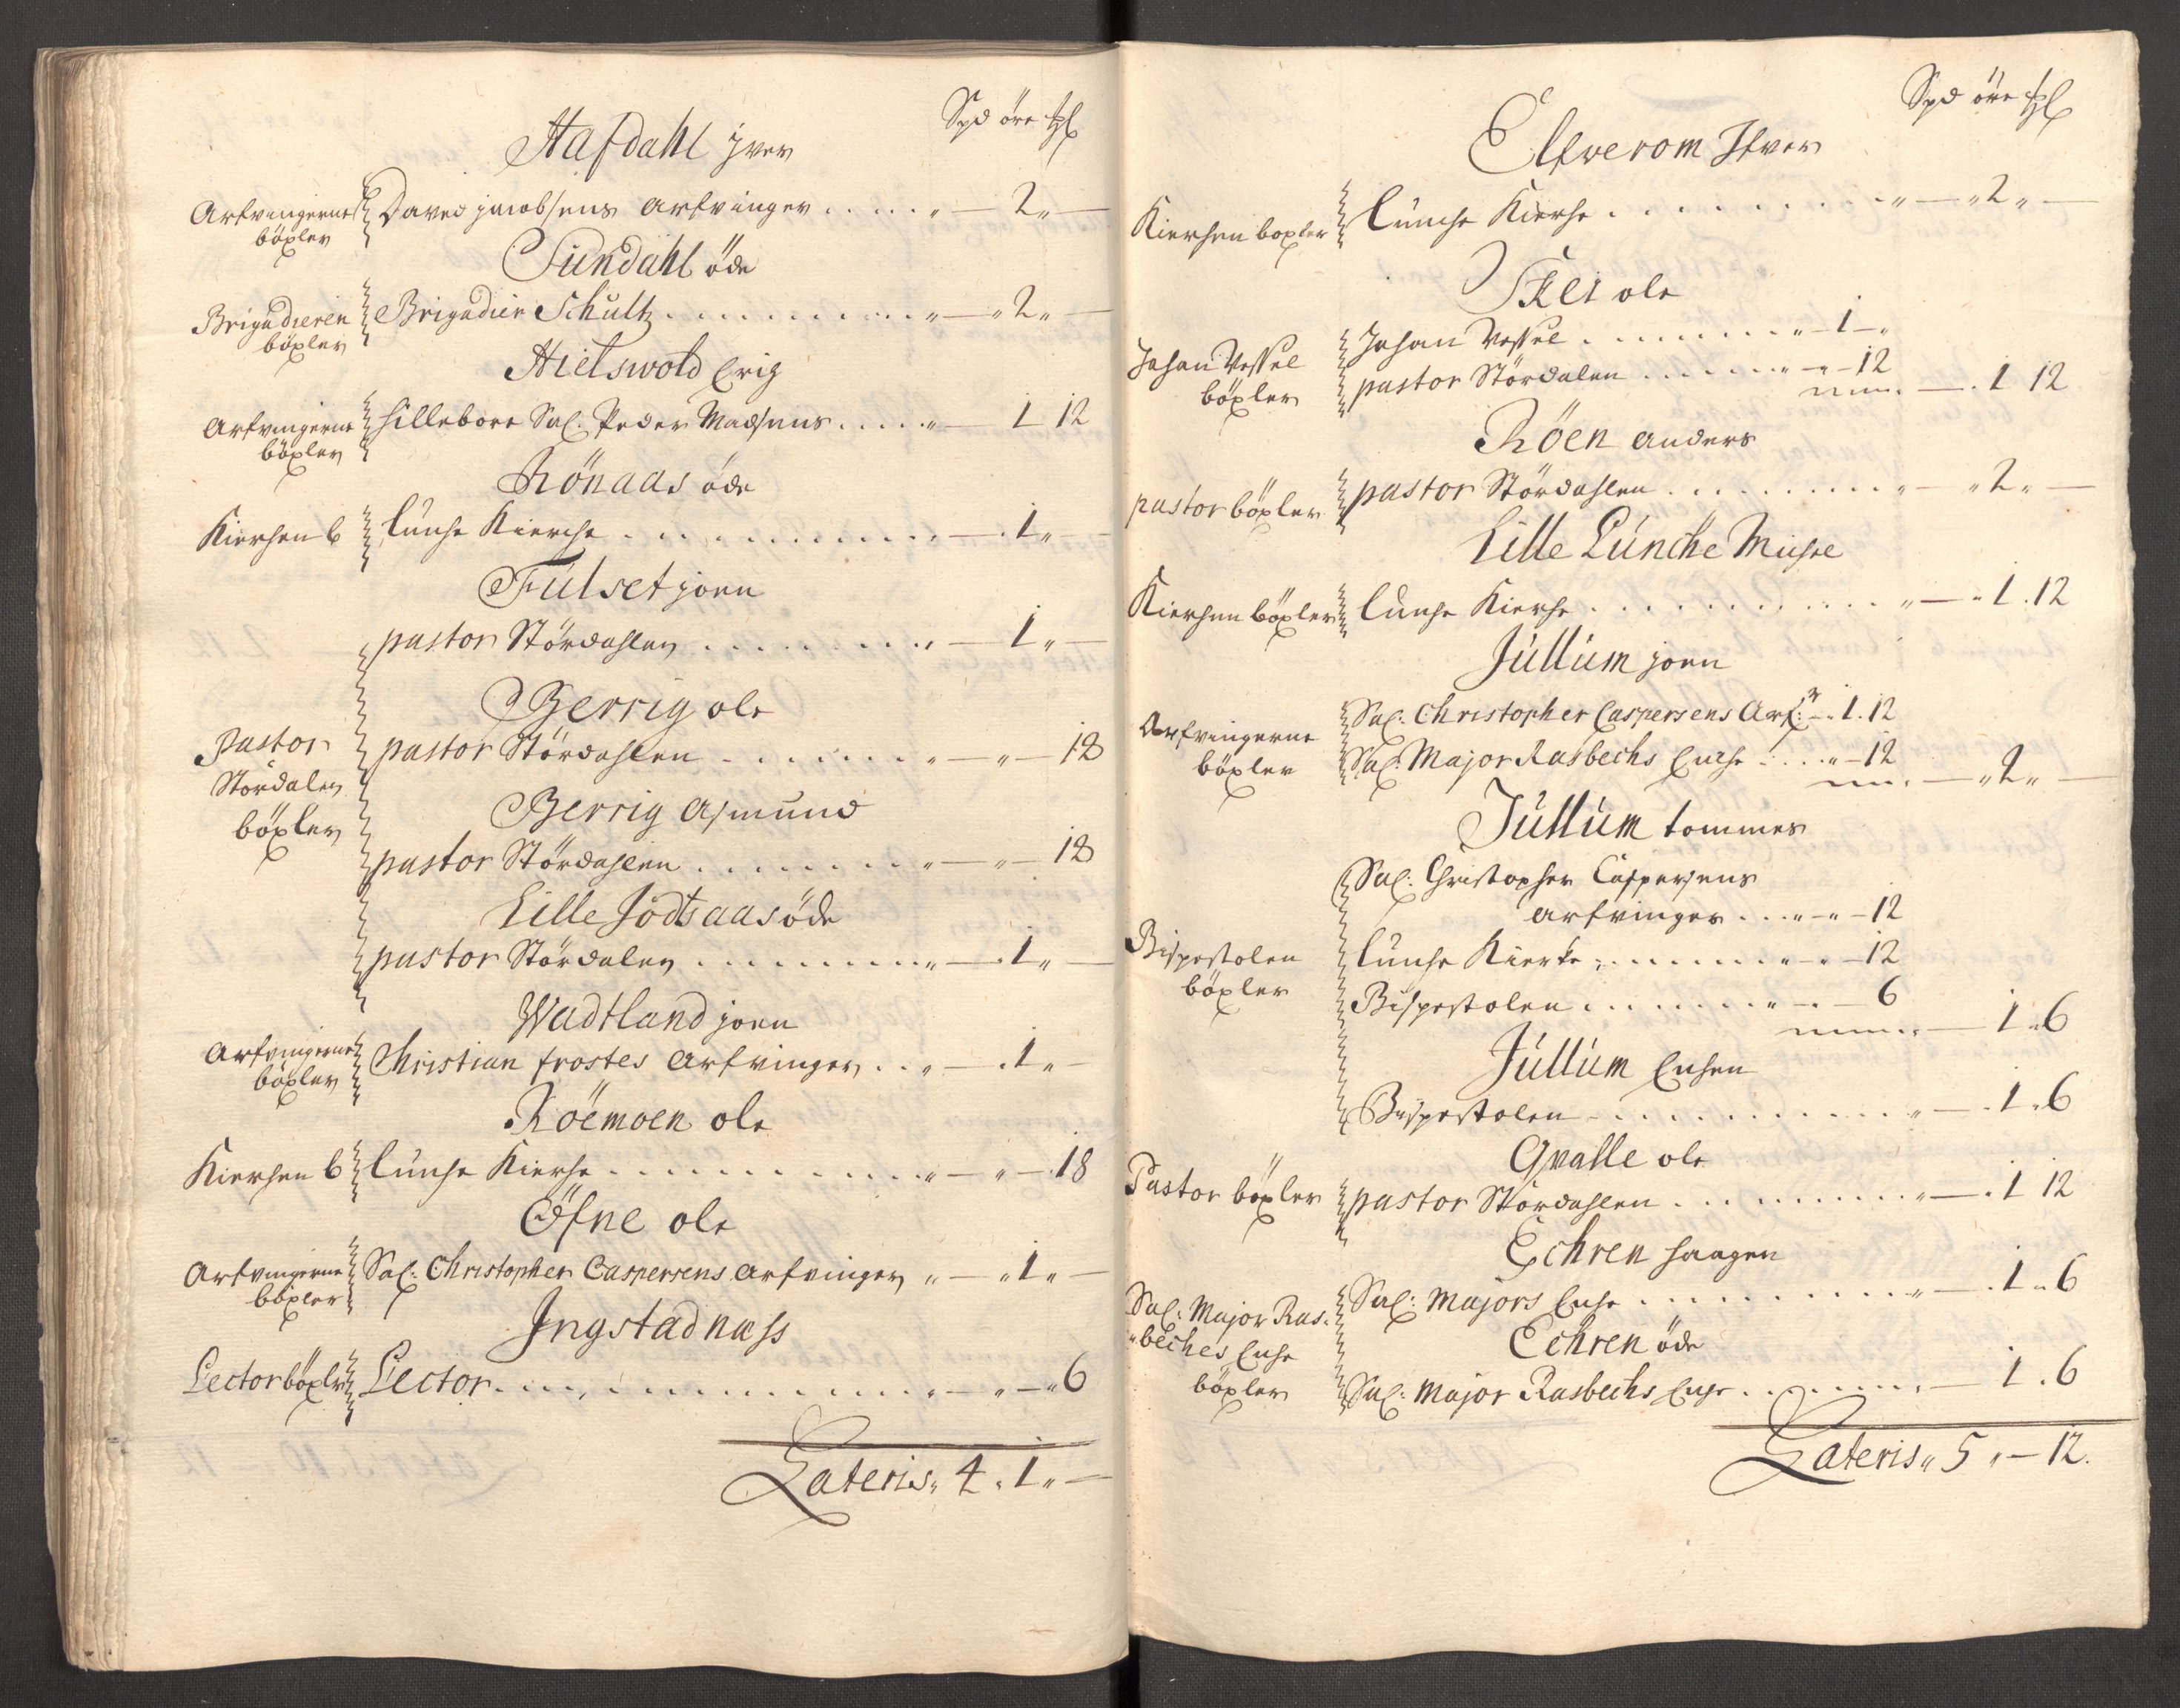 Spd öre
Hafdahl jver
Arfvingerne böxler
Daved jacobsens arfvinger . . . . . „ — 2 „ —
Sundahl öde
Brigadieren böxler
Brigadier Schultz . . . . . . . . . . „ — „ 2 „ —
Hielswold Erig
Arfvingerne böxler
Hillebore Sal. Peder Madsens . . . . . „ — 1 12
Rönaas öde
Kierchen b
Lunche Kierche . . . . . . . . . . — . 1 „ —
Fulset joen
pastor Stördahlen . . . . . . . . . „ — 1 „ —
Berrig ole
Pastor Stördalen böxler
pastor Stördahlen . . . . . . . . „ — „ — 18
Berrig Asmund
pastor Stördahlen . . . . . . . . „ — „ — 18
Lille Jodtsaas öde
pastor Stördalen . . . . . . . . . „ — . 1 „ —
Wadtland joen
Arfvingerne böxler
Christian frostes Arfvinger . . „ — . 1 „ —
Röemoen ole
Kierchen b
Lunche Kierche . . . . . . . . . . „ — „ — . 18
Öfne ole
Arfvingerne böxler
Sal: Christopher Caspersens Arfvinger „ — „ 1 „ —
Ingstadnæss
Lector böxler
Lector . . . . . . . . . . . . . . „ — „ — „ 6
Lateris „ 4 . 1 „ —
Spd öre
Elfverom Ifver
Kierchen boxler
Lunche Kierche . . . . . . . . . „ — „ 2 „ —
Schei ole
Johan Vessel böxler
Johan Vessel . . . . . . . „ — 1 — „
pastor Stördalen . . . . . . „ — „ — 12
— . 1 12
Röen anders
pastor böxler
pastor Stördahlen . . . . . . . . . „ — „ 2 „ —
Lille Lunche Michel
Kierchen böxler
Lunche Kierche . . . . . . . . . . . . „ — „ 1 . 12
Jullum joen
Arfvingerne böxler
Sal: Christopher Caspersens Arf:r — . 1 . 12
Sal. Major Rasbechs Enche . . . . „ — 12
— „ 2 „ —
Jullum tommes
Bispestolen böxler
Sal: Christopher Caspersens
Arfvinger . . . „ — „ — 12
Lunche Kierke . . . . . . . „ — „ — 12
Bispestolen . . . . . . . . „ — . — 6
— 1 „ 6
Jullum Enchen
Bispestolen . . . . . . . . . . . . „ — . 1 „ 6
Qvalle ole
Pastor böxler
pastor Stördahlen . . . . . . . . . . „ — . 1 12
Echren haagen
Sal: Major Rasbeches Enche böxler
Sal: Majors Enche . . . . . . . . . „ — . 1 „ 6
Echren öde
Sal: Major Rasbechs Enche . . . . . . . . — 1 . 6
Lateris „ 5 „ — 12.